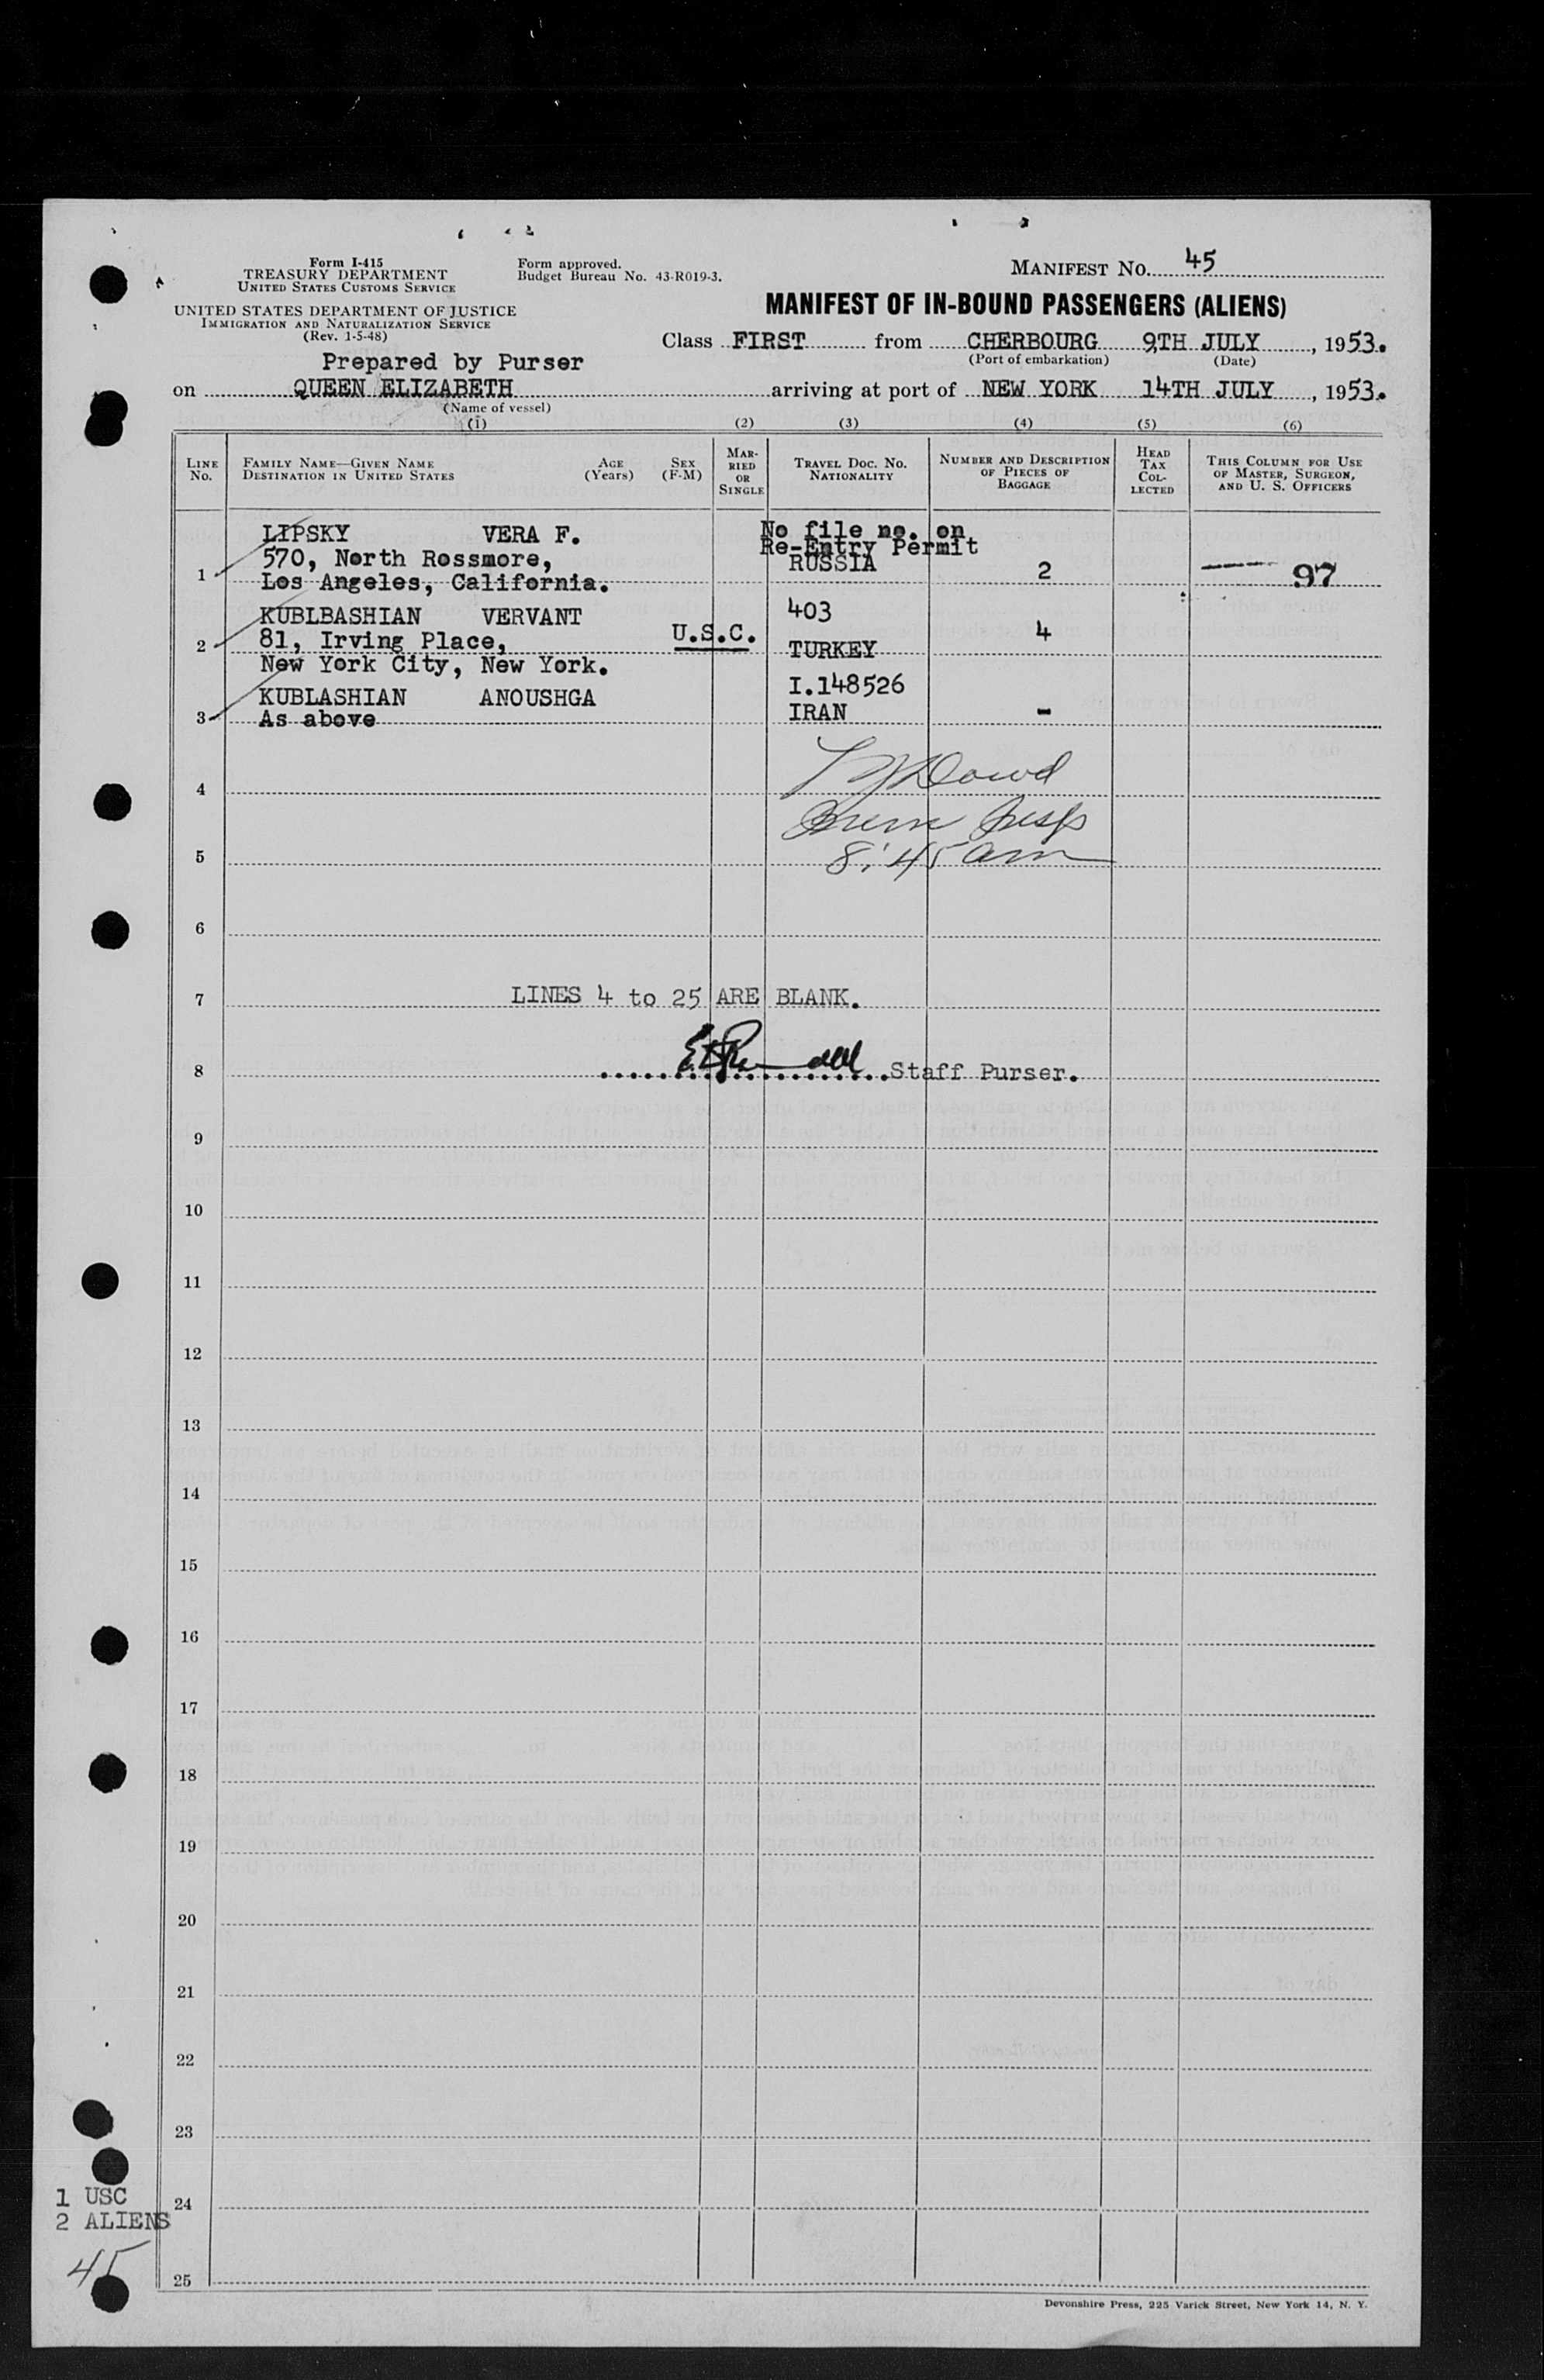 Form I-415
TREASURY DEPARTMENT
UNITED STATES CUSTOMS SERVICE
UNITED STATES DEPARTMENT OF JUSTICE
IMMIGRATION AND NATURALIZATION SERVICE
(Rev. 1-5-48)
Form approved.
Budget Bureau No. 43-R019-3.
MANIFEST NO. 45
MANIFEST OF IN-BOUND PASSENGERS (ALIENS)
Class FIRST from CHERBOURG 9TH JULY, 1953.
(Port of embarkation) (Date)
Prepared by Purser
on QUEEN ELIZABETH arriving at port of NEW YORK 14TH JULY, 1953.
(Name of vessel)
(1) (2) (3) (4) (5) (6)
LINE NO.
FAMILY NAME—GIVEN NAME
DESTINATION IN UNITED STATES
AGE (Years)
SEX (F-M)
MARRIED OR SINGLE
TRAVEL DOC. NO.
NATIONALITY
NUMBER AND DESCRIPTION OF PIECES OF BAGGAGE
HEAD TAX COLLECTED
THIS COLUMN FOR USE OF MASTER, SURGEON, AND U. S. OFFICERS
LIPSKY VERA F. No file no. on
570, North Rossmore, Re-Entry Permit
1 Los Angeles, California. RUSSIA 2 97
KUBLBASHIAN VERVANT 403
2 81, Irving Place, U.S.C. TURKEY 4
New York City, New York.
KUBLASHIAN ANOUSHGA I.148526
3 As above IRAN -
4
5 8:45 am
6
7 LINES 4 to 25 ARE BLANK.
8 Staff Purser.
9
10
11
12
13
14
15
16
17
18
19
20
21
22
23
1 USC
24
2 ALIENS
45
25
Devonshire Press, 225 Varick Street, New York 14, N. Y.